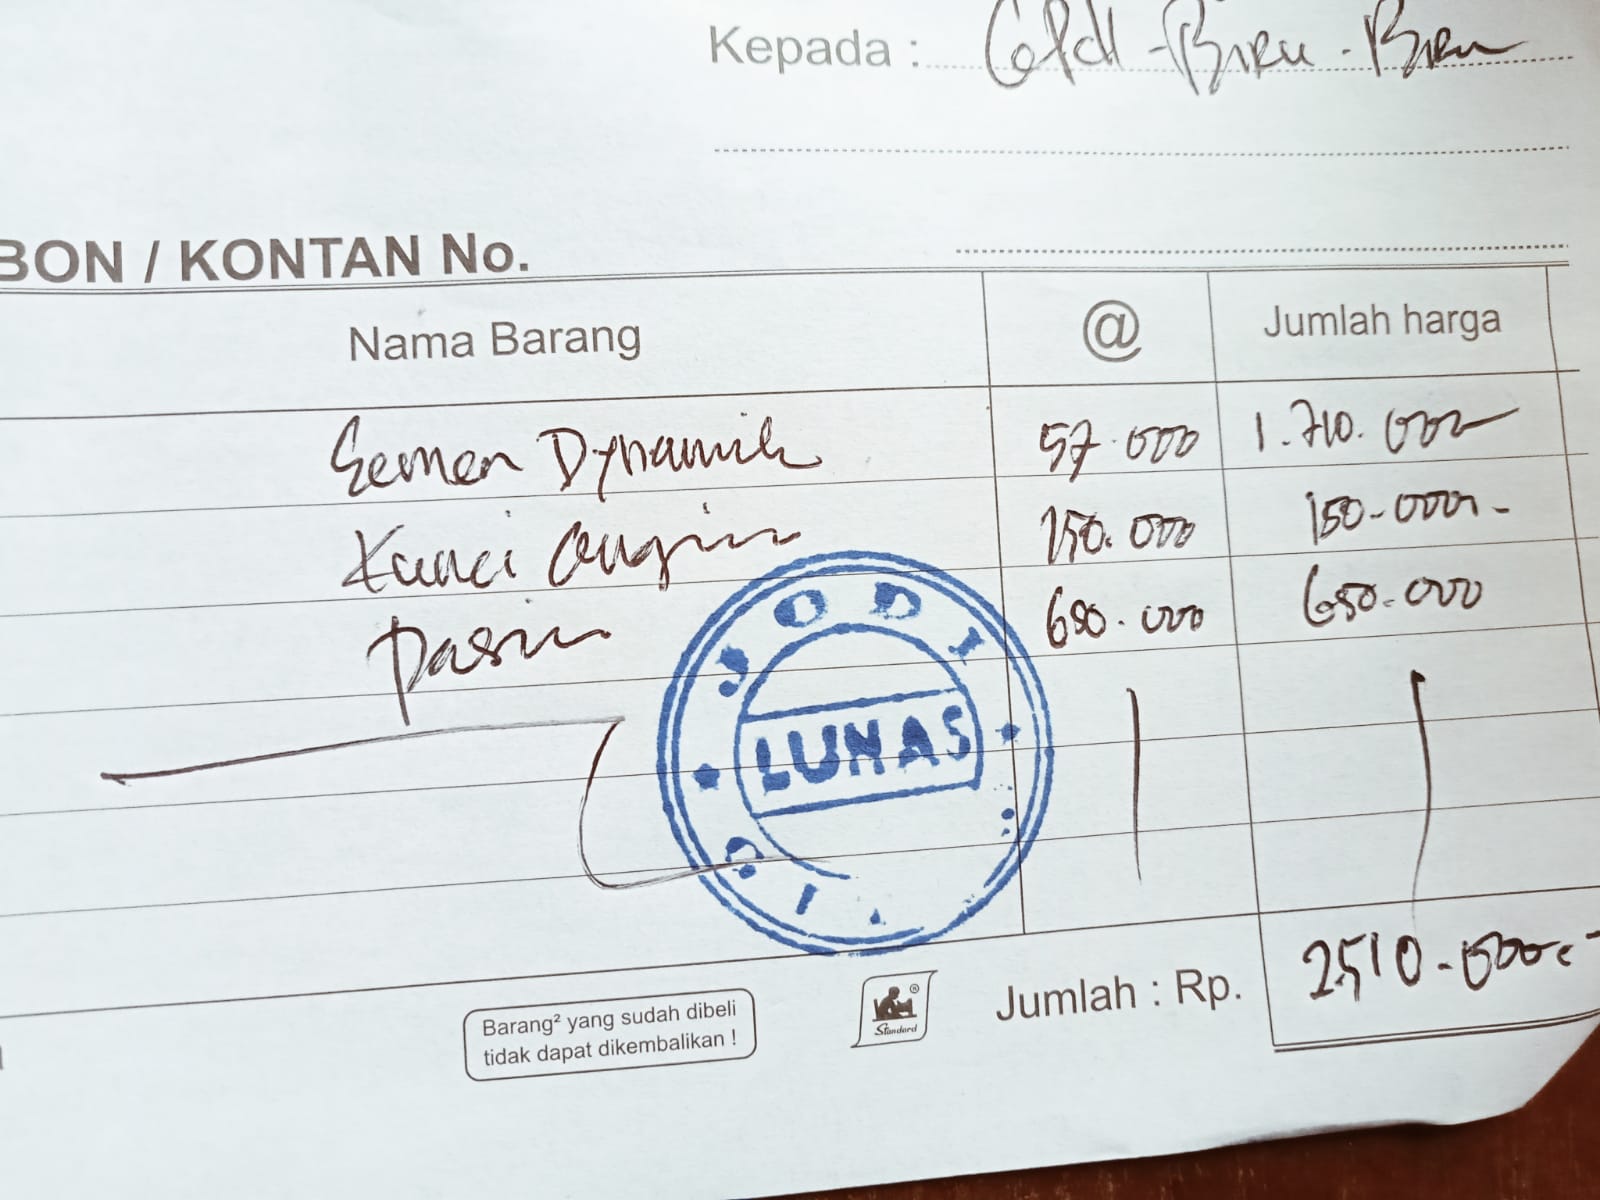 Kepada : Biru - Biru
BON / KONTAN No.
Nama Barang @ Jumlah harga
Semen Dynamik 57.000 1.710.000
Kunci angin 150.000 150.000.-
Pasir 650.000 650.000
JODI
LUNAS
Jumlah : Rp. 2.510.000.-
Barang² yang sudah dibeli
tidak dapat dikembalikan !
® Standard